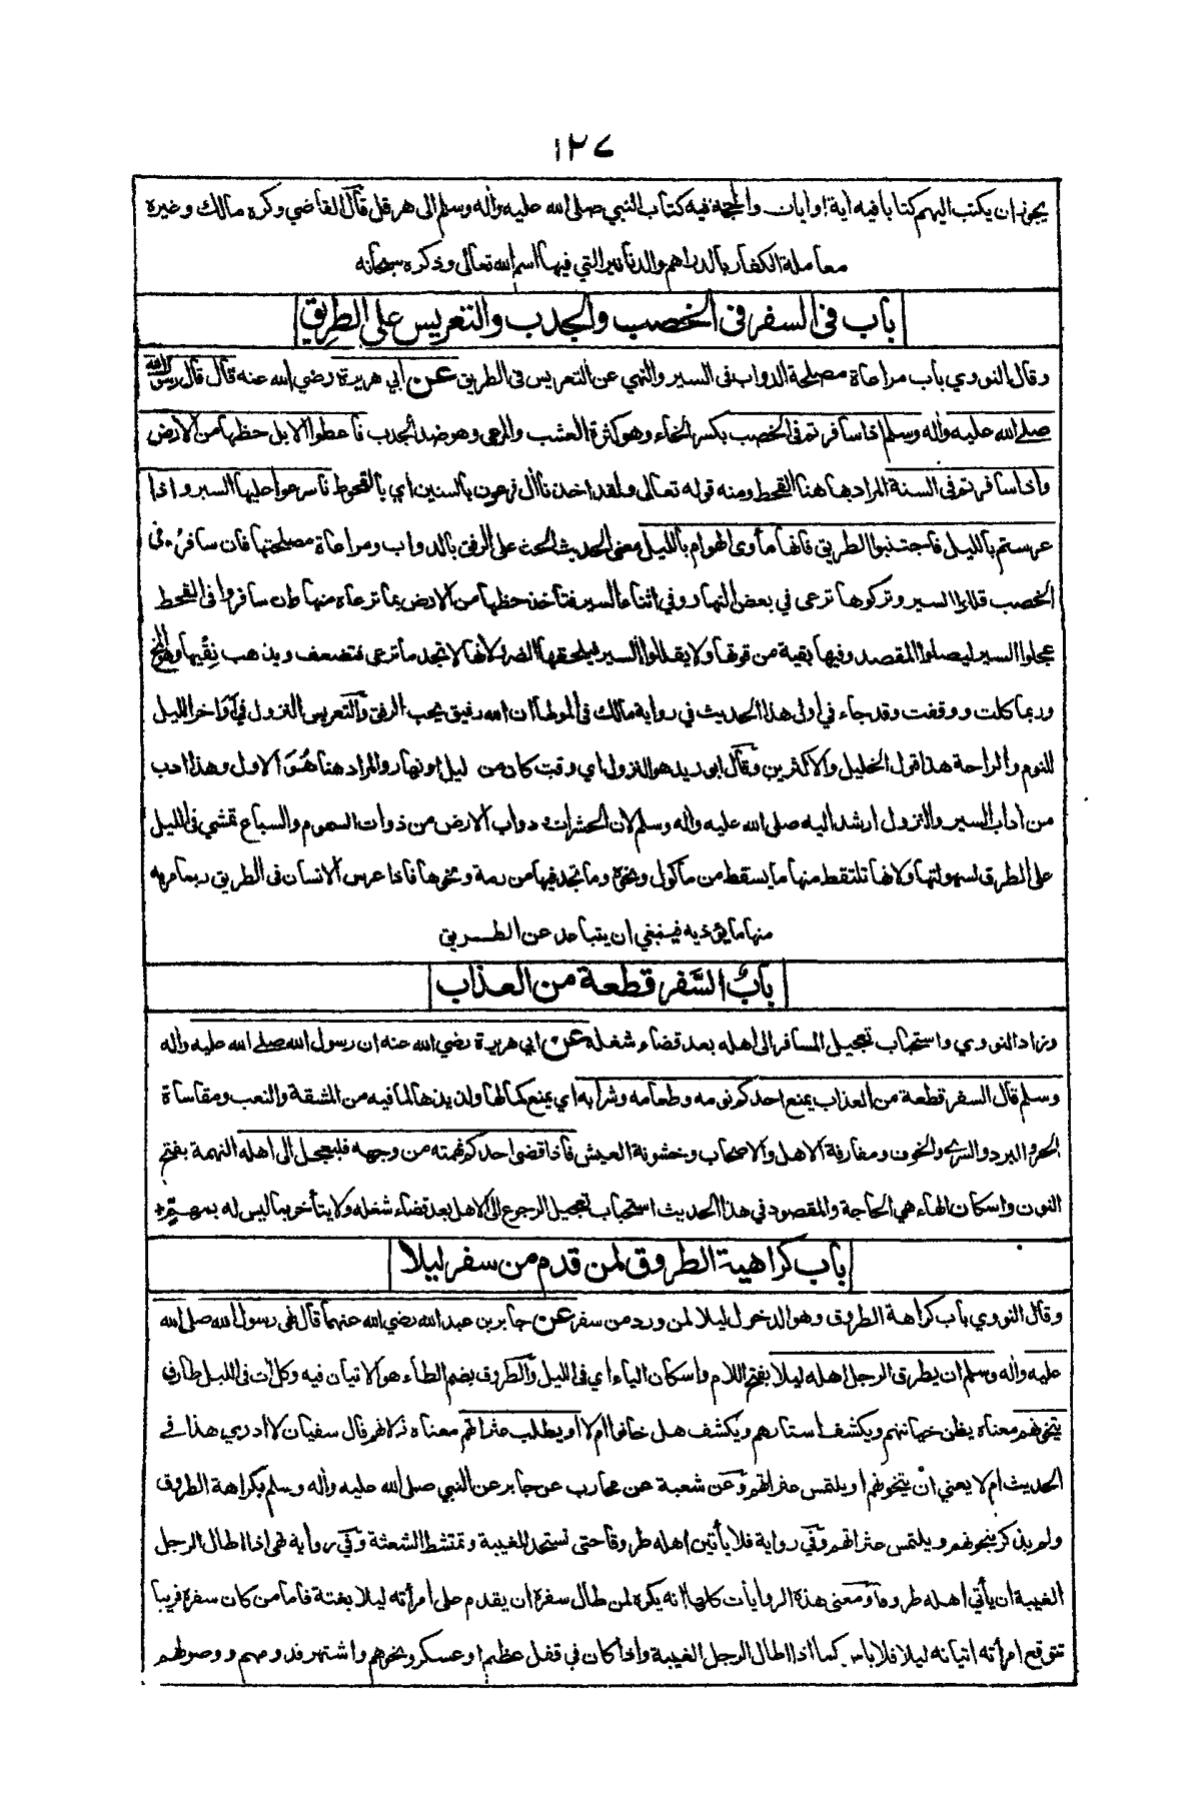 ١٢٧
يجوز ان يكتب اليهم كتابا فيه اية او ايات والحجة فيه كتاب النبي صلى الله عليه واله وسلم الى هرقل قال القاضي وكره مالك وغيره
معاملة الكفار بالدراهم والدنانير التي فيها اسم الله تعالى وذكره سبحانه
باب فى السفر فى الخصب والجدب والتعريس على الطريق
وقال النووي باب مراعاة مصلحة الدواب فى السير والنهي عن التعريس فى الطريق عن أبي هريرة رضي الله عنه قال قال رسول الله
صلى الله عليه واله وسلم اذا سافرتم فى الخصب بكسر الخاء وهو كثرة العشب والمرعى وهو ضد الجدب فاعطوا الابل حظها من الارض
واذا سافرتم فى السنة المراد بها هنا القحط ومنه قوله تعالى ولقد اخذنا أل فرعون بالسنين اي بالقحوط فاسرعوا عليها السير واذا
عرستم بالليل فاجتنبوا الطريق فانها مأوى الهوام بالليل معنى الحديث الحث على الرفق بالدواب ومراعاة مصلحتها فان سافروا فى
الخصب قللوا السير وتركوها ترعى في بعض النهار وفي اثناء السير فتأخذ حظها من الارض بما ترعاه منها وان سافروا فى القحط
عجلوا السير ليصلوا المقصد وفيها بقية من قوتها ولا يقللوا السير فيلحقها الضرر لانها لا تجد ما ترعى فتضعف ويذهب نقيها وهو المخ
وربما كلت ووقفت وقد جاء في اول هذا الحديث في رواية مالك فى الموطا ان الله رفيق يحب الرفق والتعريس النزول في أواخر الليل
للنوم والراحة هذا قول الخليل والاكثرين وقال ابو زيد هو النزول اي وقت كان من ليل او نهار والمراد هنا هُوَ الاول وهذا ادب
من اداب السير والنزول ارشد اليه صلى الله عليه واله وسلم لان الحشرات دواب الارض من ذوات السموم والسباع تمشي فى الليل
على الطرق لسهولتها ولانها تلتقط منها ما يسقط من مأكول ونحوه وما تجد فيها من رمة ونحوها فاذا عرس الانسان فى الطريق ربما مر به
منها ما يؤذيه فينبغي ان يتباعد عن الطريق
باب السَّفر قطعة من العذاب
وزاد النووي واستحباب تعجيل المسافر الى اهله بعد قضاء شغله عن ابي هريرة رضي الله عنه ان رسول الله صلى الله عليه واله
وسلم قال السفر قطعة من العذاب يمنع احدكم نومه وطعامه وشرابه اي يمنع كمالها ولذيذها لما فيه من المشقة والتعب ومقاساة
الحر والبرد والسرى والخوف ومفارقة الاهل والاصحاب وخشونة العيش فاذا قضى احدكم نهمته من وجهه فليعجل الى اهله النهمة بفتح
النون واسكان الهاء هي الحاجة والمقصود في هذا الحديث استحباب تعجيل الرجوع الى الاهل بعد قضاء شغله ولا يتأخر بما ليس له بمهم
باب كراهية الطروق لمن قدم من سفر ليلا
وقال النووي باب كراهة الطروق وهو الدخول ليلا لمن ورد من سفر عن جابر بن عبد الله رضي الله عنهما قال نهى رسول الله صلى الله
عليه واله وسلم ان يطرق الرجل اهله ليلا بفتح اللام واسكان الياء اي فى الليل والطروق بضم الطاء هو الاتيان فيه وكل ات فى الليل طارق
يتخونهم معناه يظن خيانتهم ويكشف استارهم ويكشف هل خانوا ام لا او يطلب عثراتهم معناه زلاتهم قال سفيان لا ادري هذا في
الحديث ام لا يعني ان يتخونهم او يلتمس عثراتهم وعن شعبة عن محارب عن جابر عن النبي صلى الله عليه واله وسلم بكراهة الطروق
ولم يذكر يتخونهم ويلتمس عثراتهم وفي رواية فلا يأتين اهله طروقا حتى تستحد المغيبة وتمتشط الشعثة وفي رواية نهى اذا اطال الرجل
الغيبة ان يأتي اهله طروقا ومعنى هذه الروايات كلها انه يكره لمن طال سفره ان يقدم على امرأته ليلا بغتة فاما من كان سفره قريبا
تتوقع امرأته اتيانه ليلا فلا باس كما اذا اطال الرجل الغيبة واذا كان في قفل عظيم او عسكر ونحوهم واشتهر قدومهم ووصولهم